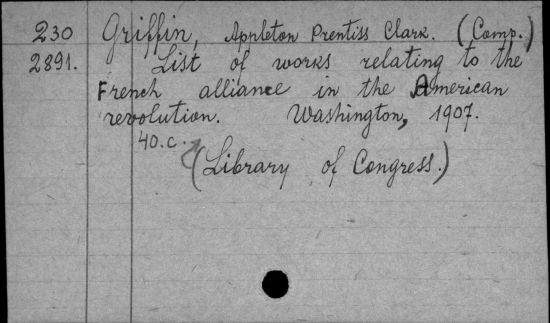 230 Griffin, Appleton Prentiss Clark. (Comp.)
2891. List of works relating to the
French alliance in the American
revolution. Washington, 1907.
40.c.
(Library of Congress.)